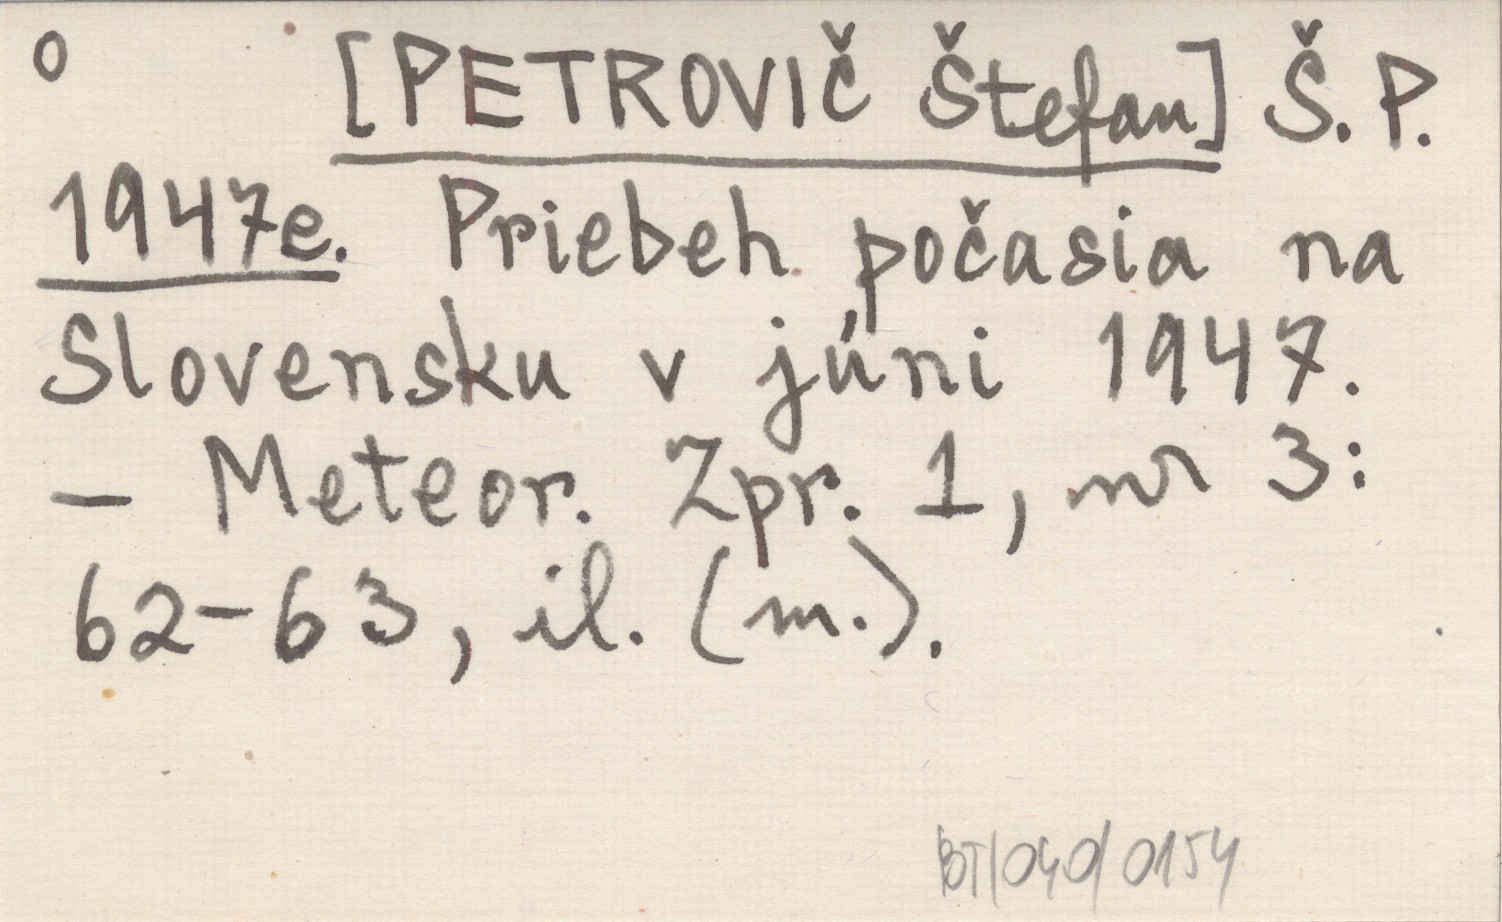 o [PETROVIČ Štefan] Š. P.
1947e. Priebeh počasia na
Slovensku v júni 1947.
— Meteor. Zpr. 1, nr 3:
62-63, il. (m.).
BT/040/0154